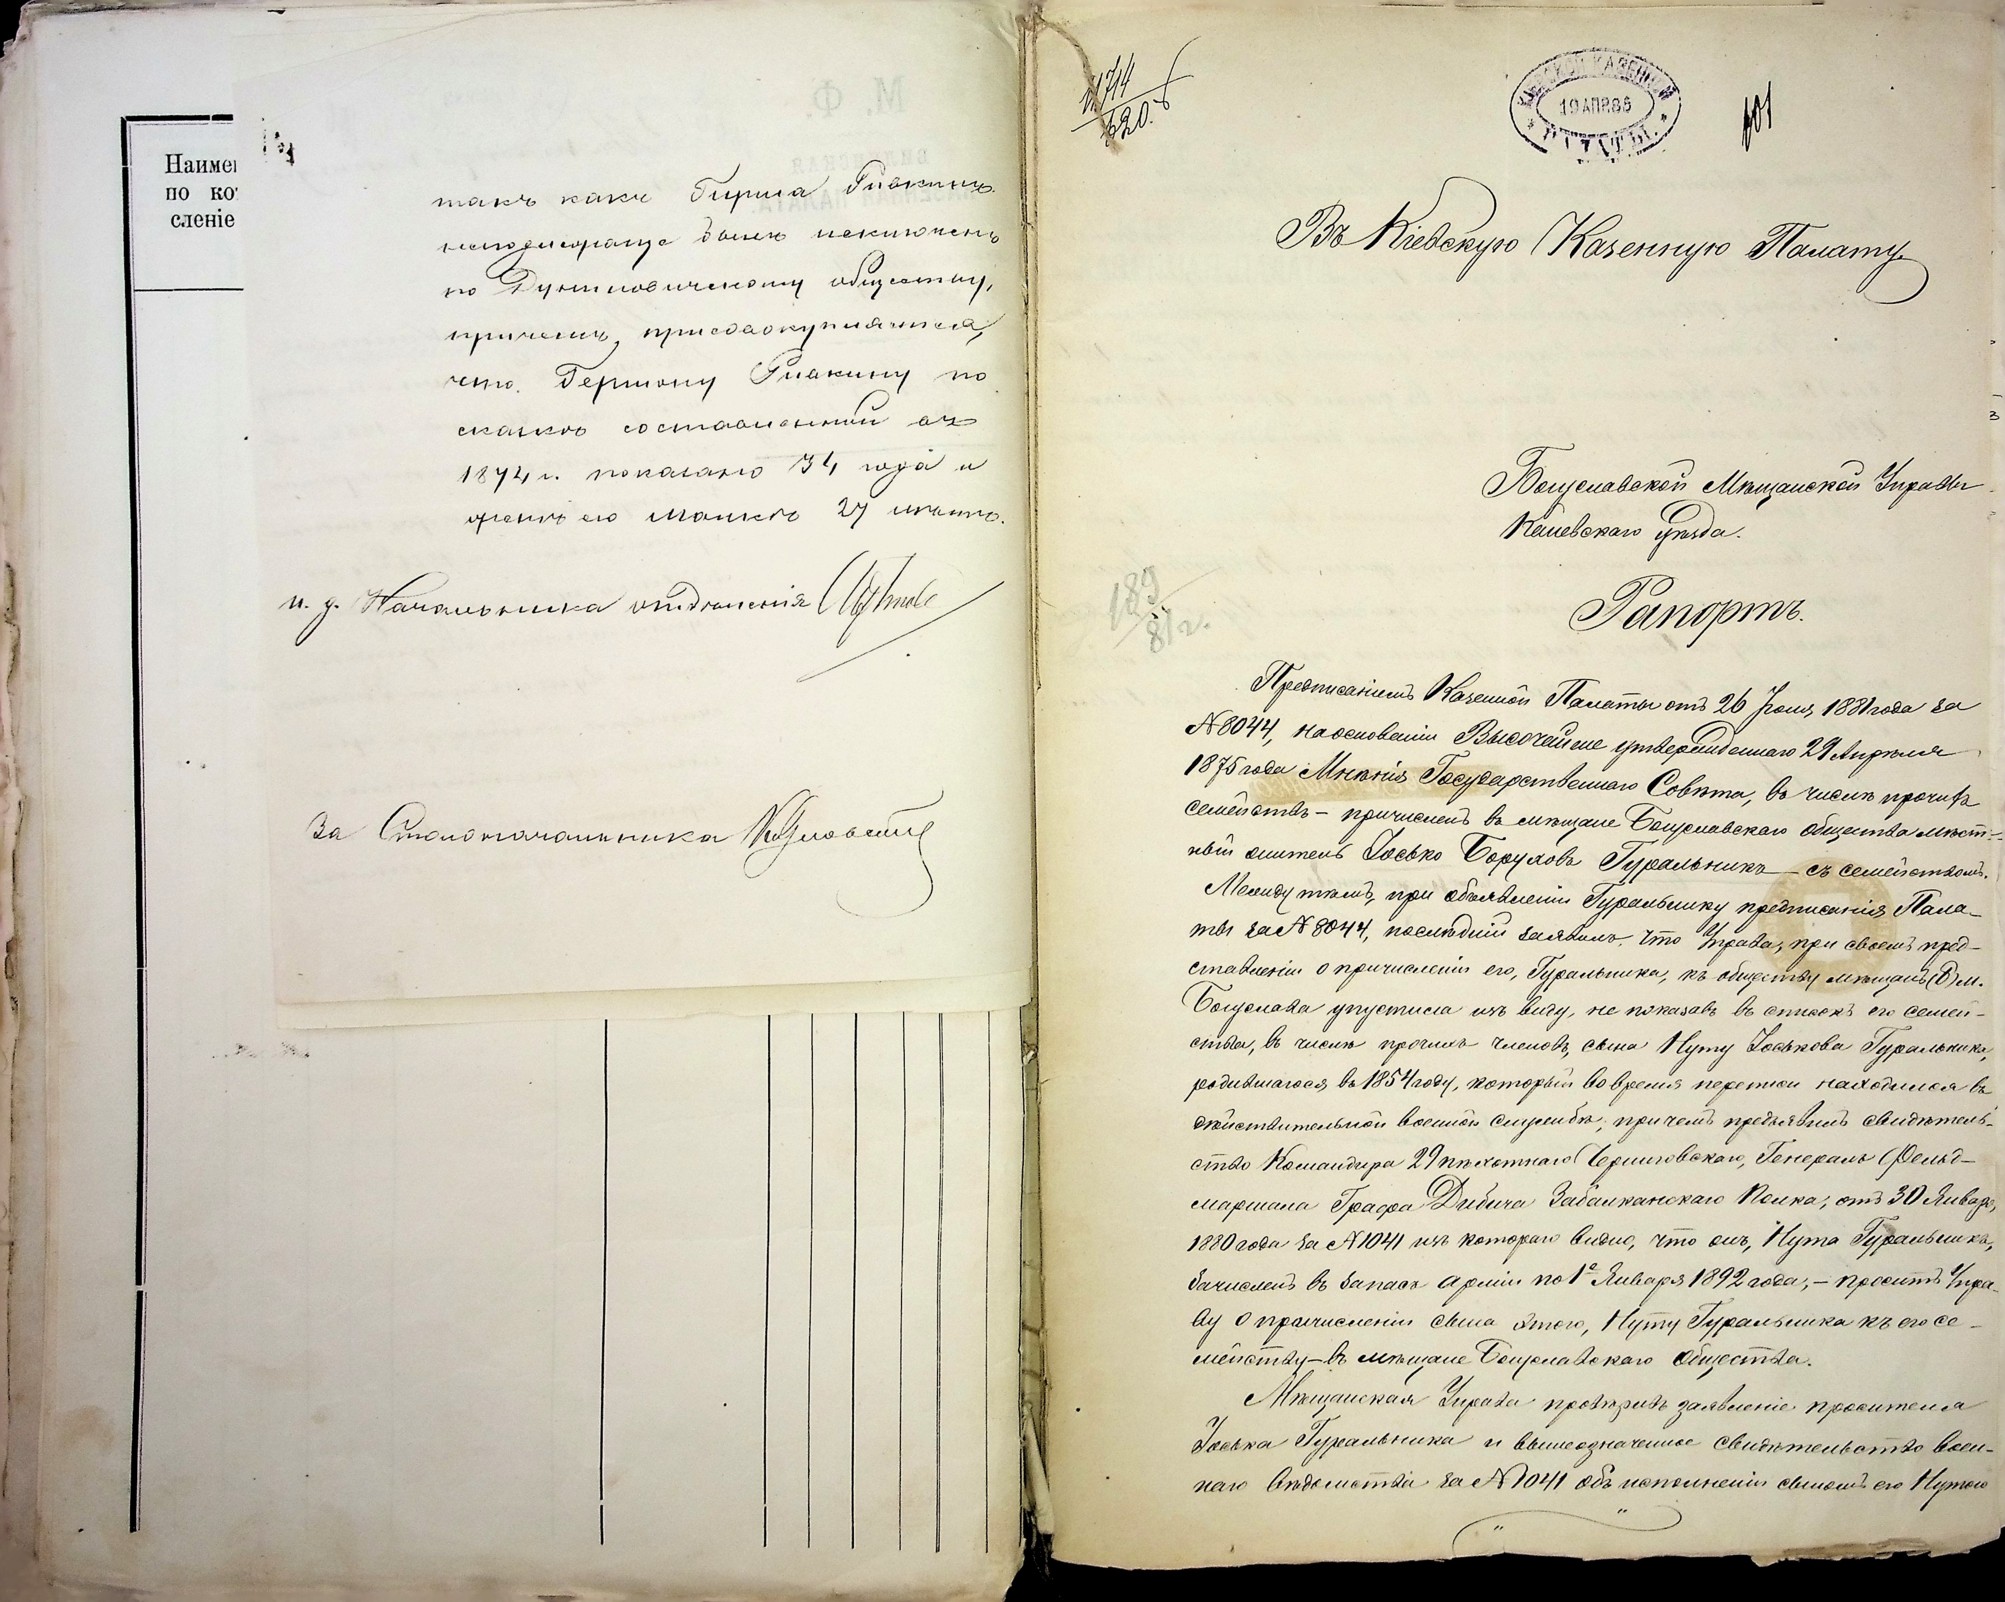 Наимен
по ко
сленіе
такъ какъ Гирша Ривкинъ
былъ исключенъ
по Дуниловичскому обществу,
причемъ, присовокупляется,
что Гершону Ривкину по
сказкѣ составленной въ
1874 г. показано 34 года и
женѣ его 27 лѣтъ.
и. д. Начальника отдѣленія
За Столоначальника
КІЕВСКОЙ КАЗЕННОЙ
19 АПР 86
ПАЛАТЫ.
Въ Кіевскую Казенную Палату
Богуславской Мѣщанской Управы
Каневскаго уѣзда.
189
81 г.
Рапортъ.
Предписаніемъ Казенной Палаты отъ 26 Іюня 1881 года за
№ 8044, на основаніи Высочайше утвержденнаго 29 Апрѣля
1875 года Мнѣнія Государственнаго Совѣта, въ числѣ прочихъ
семействъ – причисленъ въ мѣщане Богуславскаго общества мѣст-
ный житель Іосько Боруховъ Гуральникъ – съ семействомъ.
Между тѣмъ, при объявленіи Гуральнику предписанія Пала-
ты за № 8044, послѣдній заявилъ, что Управа, при своемъ пред-
ставленіи о причисленіи его, Гуральника, къ обществу мѣщанъ м.
Богуслава упустила изъ виду, не показавъ въ спискѣ его семей-
ства, въ числѣ прочихъ членовъ, сына Нуту Іоськова Гуральника,
родившагося въ 1854 году, который во время переписи находился въ
дѣйствительной военной службѣ; причемъ предъявилъ свидѣтель-
ство Командира 29 пѣхотнаго Черниговскаго, Генералъ Фельд-
маршала Графа Дибича Забалканскаго Полка, отъ 30 Января
1880 года за № 1041 изъ котораго видно, что онъ, Нута Гуральникъ,
зачисленъ въ запасъ арміи по 1е Января 1892 года, – проситъ Упра-
ву о причисленіи сына этого, Нуту Гуральника къ его се-
мейству – въ мѣщане Богуславскаго общества.
Мѣщанская Управа провѣривъ заявленіе просителя
Іоська Гуральника и вышеозначенное свидѣтельство воен-
наго вѣдомства за № 1041 объ исполненіи сыномъ его Нутою